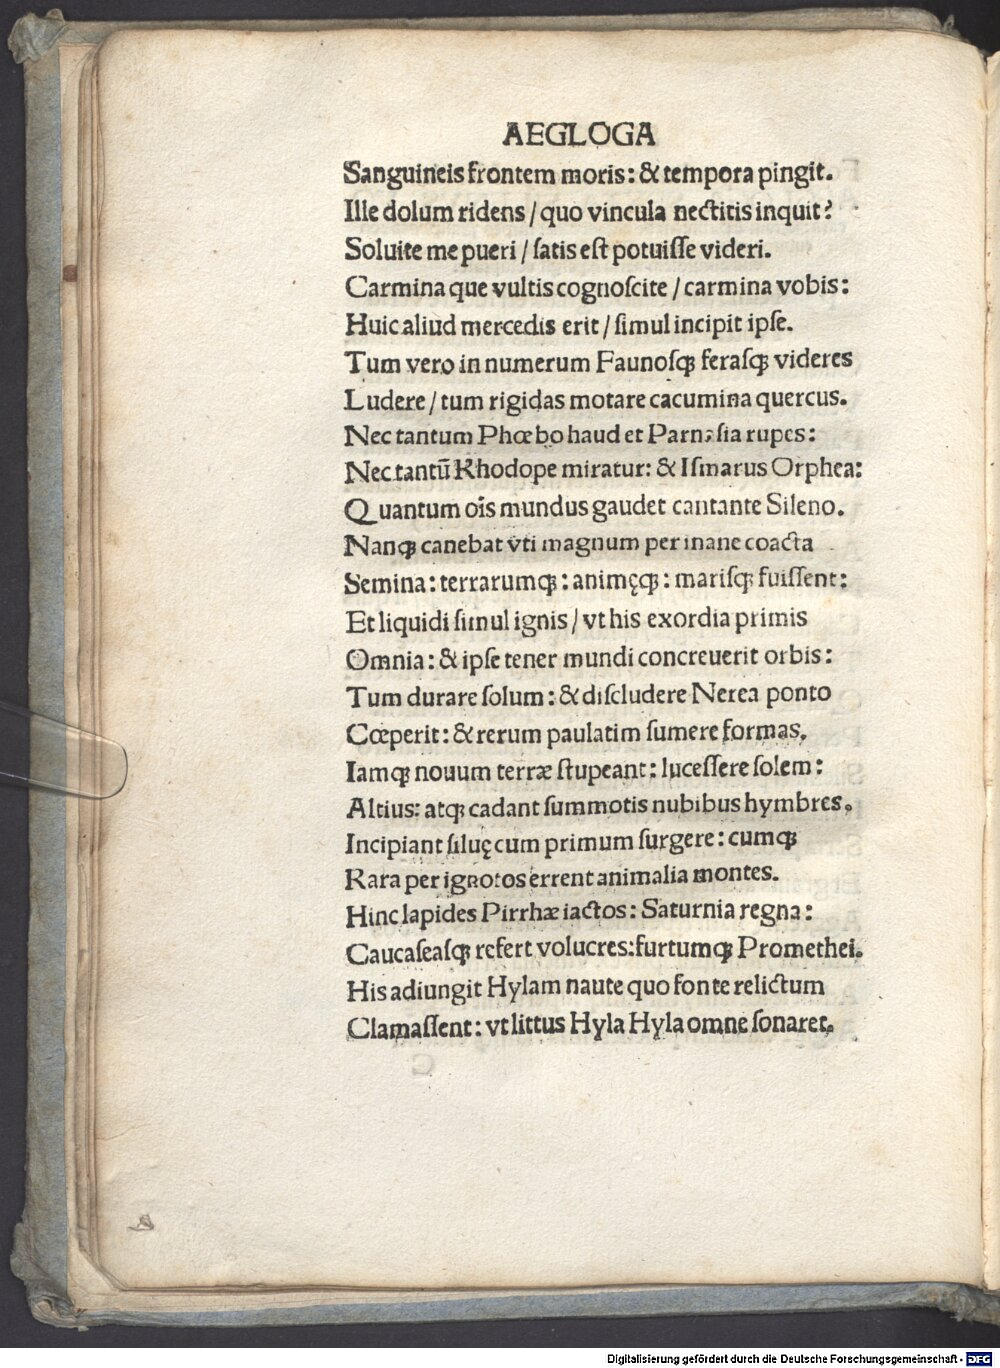 AEGLOGA
Sanguineis frontem moris: & tempora pingit.
Ille dolum ridens / quo vincula nectitis inquit?
Soluite me pueri / ſatis eſt potuiſſe videri.
Carmina que vultis cognoſcite / carmina vobis:
Huic aliud mercedis erit / ſimul incipit ipſe.
Tum vero in numerum Faunoſqꝫ feraſqꝫ videres
Ludere / tum rigidas motare cacumina quercus.
Nec tantum Phœbo haud et Parnaſia rupes:
Nec tantū Rhodope miratur: & Iſmarus Orphea:
Quantum oīs mundus gaudet cantante Sileno.
Nanqꝫ canebat vti magnum per inane coacta
Semina: terrarumqꝫ: animęqꝫ: mariſqꝫ fuiſſent:
Et liquidi ſimul ignis / vt his exordia primis
Omnia: & ipſe tener mundi concreuerit orbis:
Tum durare ſolum: & diſcludere Nerea ponto
Cœperit: & rerum paulatim ſumere formas.
Iamqꝫ nouum terræ ſtupeant: luceſſere ſolem:
Altius: atqꝫ cadant ſummotis nubibus hymbres.
Incipiant ſiluę cum primum ſurgere: cumqꝫ
Rara per ignotos errent animalia montes.
Hinc lapides Pirrhæ iactos: Saturnia regna:
Caucaſeaſqꝫ refert volucres: furtumqꝫ Promethei.
His adiungit Hylam naute quo fonte relictum
Clamaſſent: vt littus Hyla Hyla omne ſonaret.
Digitalisierung gefördert durch die Deutsche Forschungsgemeinschaft - DFG